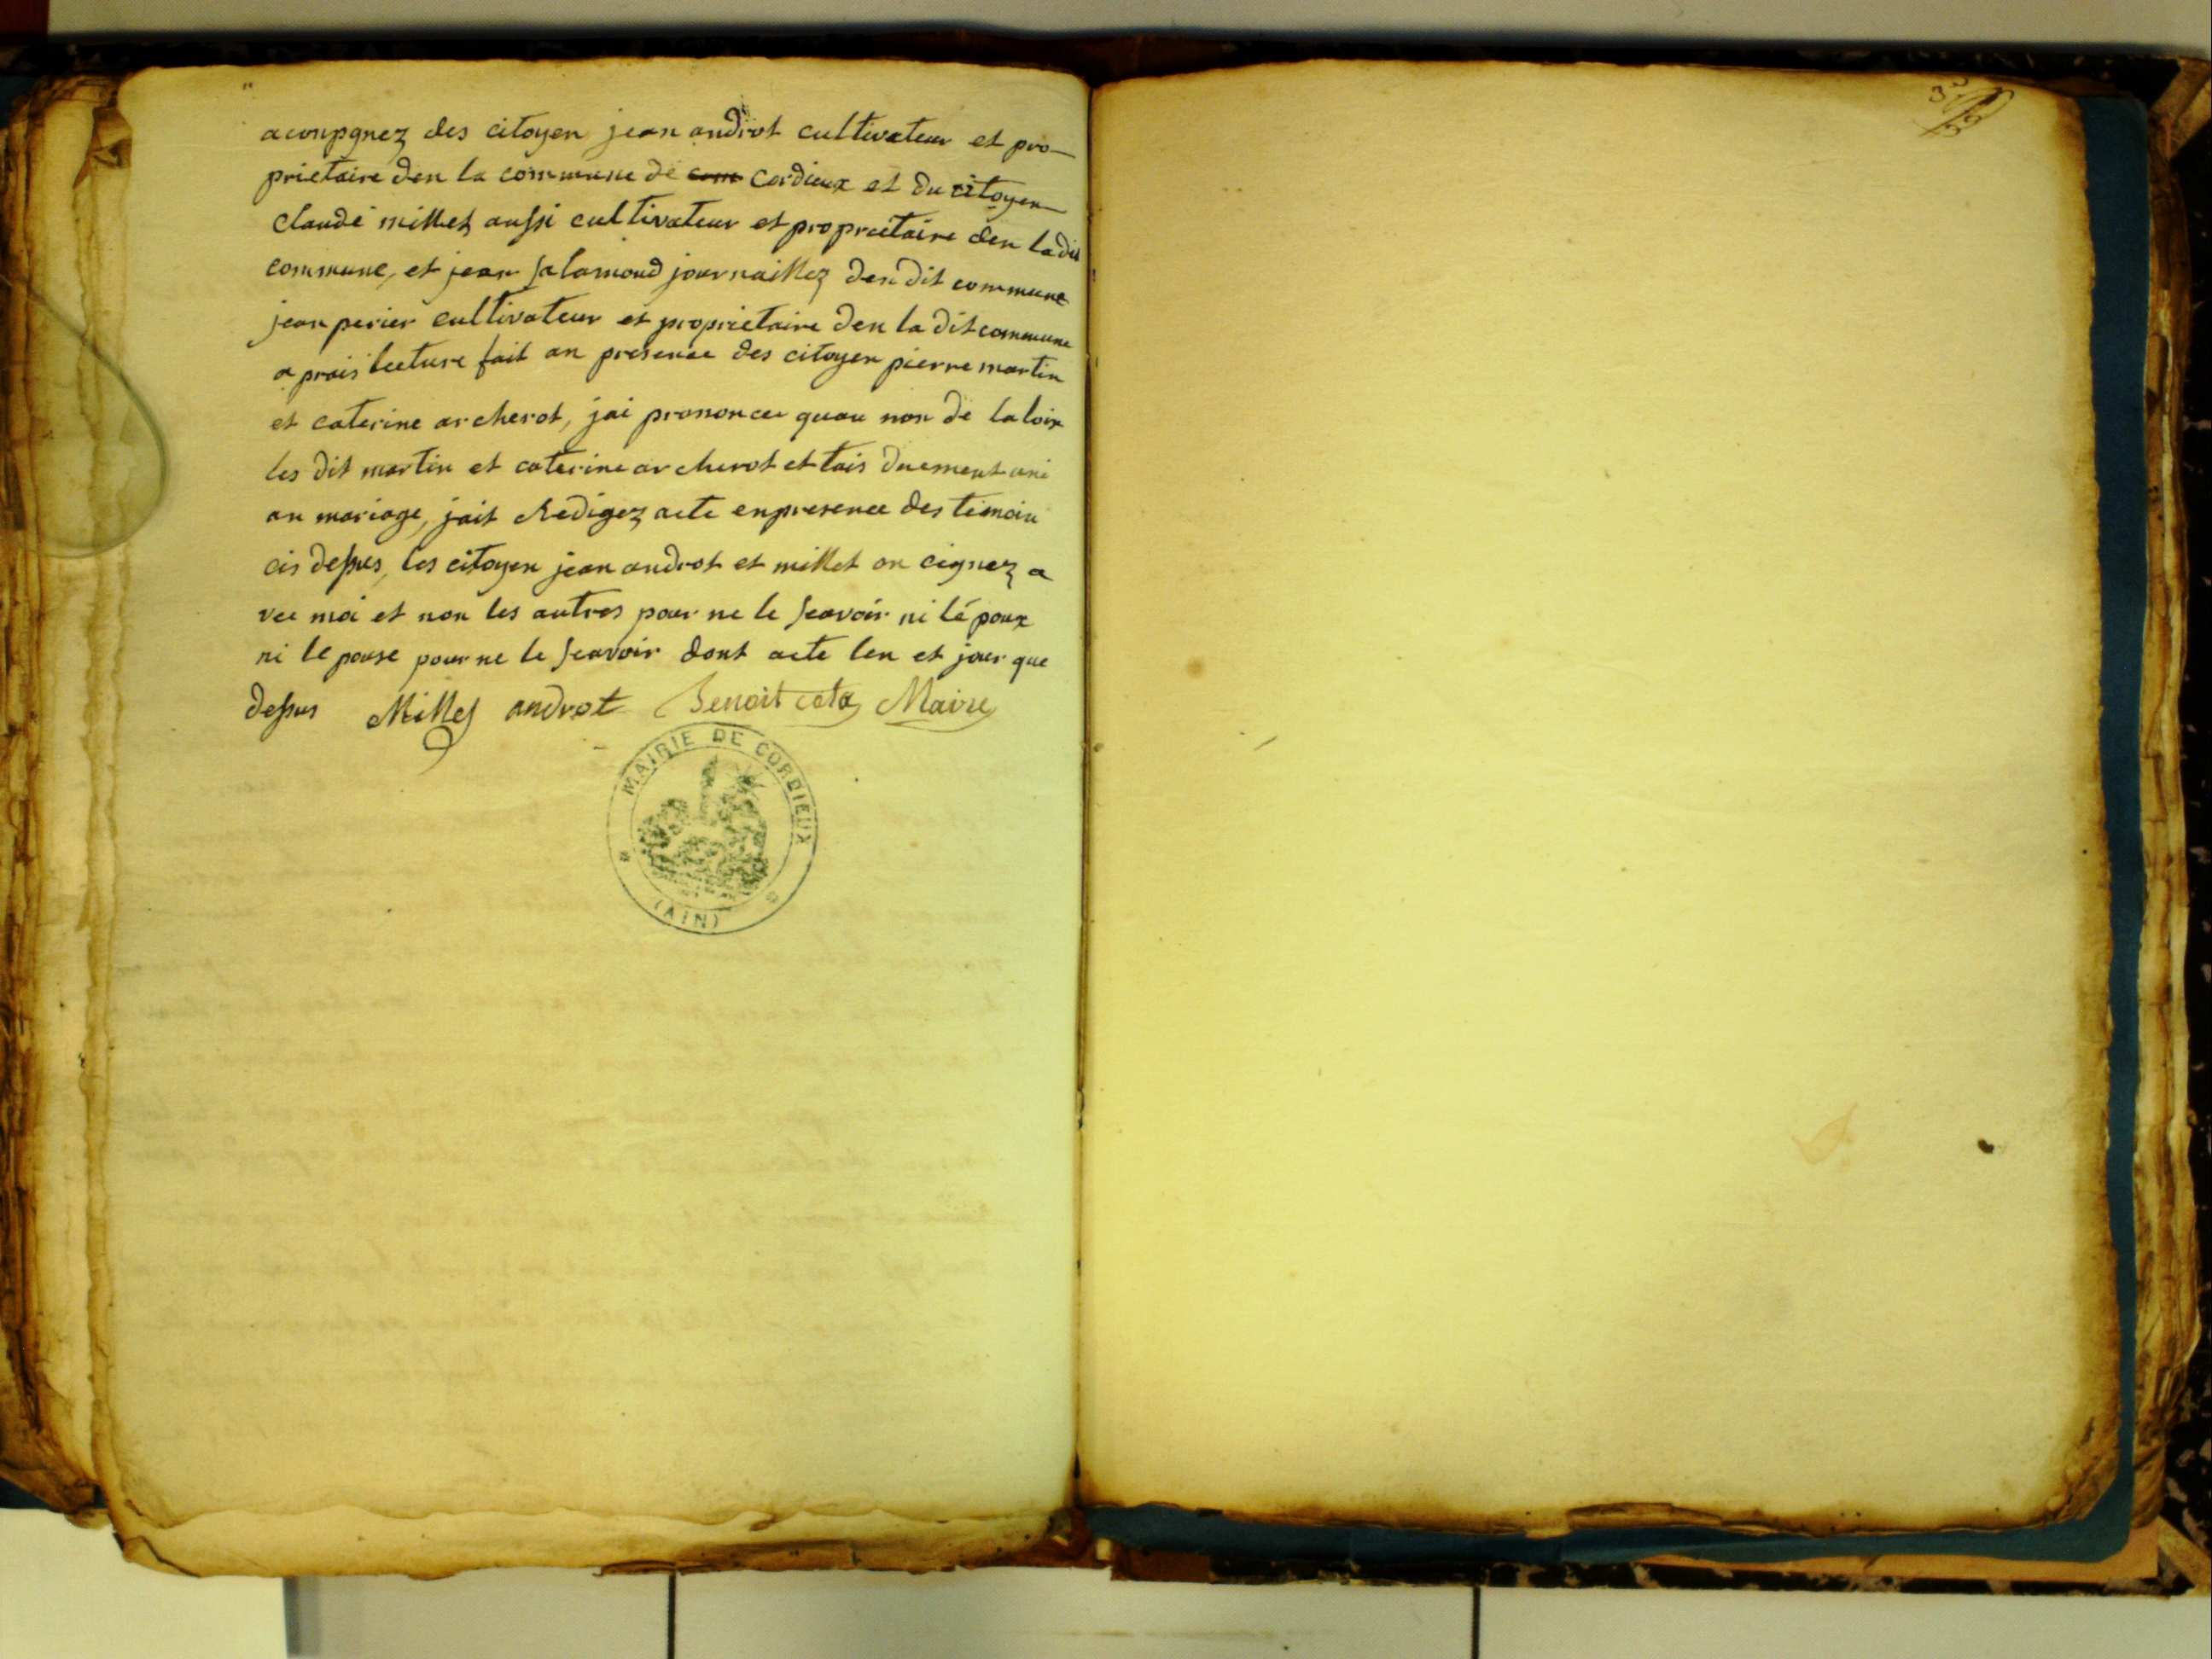 acoupgnez des citoyen jean androt cultivateur et pro-
prietaire den la commune de com Cordieux et du citoyen
Claude millet aussi cultivateur et propriietaire den la dit
commune, et jean salamond journaillez den dit commune
jean perier cultivateur et proprietaire den la dit commune
a prais lecture fait an presence des citoyen pierre martin
et caterine archerot, jai prononcer quau non de la loix
les dit martin et caterine archerot et tais duement uni
an mariage, jait Redigez acte enpresence des temoin
cis dessus, les citoyen jean androt et millet on cignez a
vec moi et non les autres pour ne le scavoir ni lé poux
ni le pouse pour ne le scavoir dont acte len et jour que
dessus Millet androt Benoit cota Maire
MAIRIE DE CORDIEUX
(AIN)